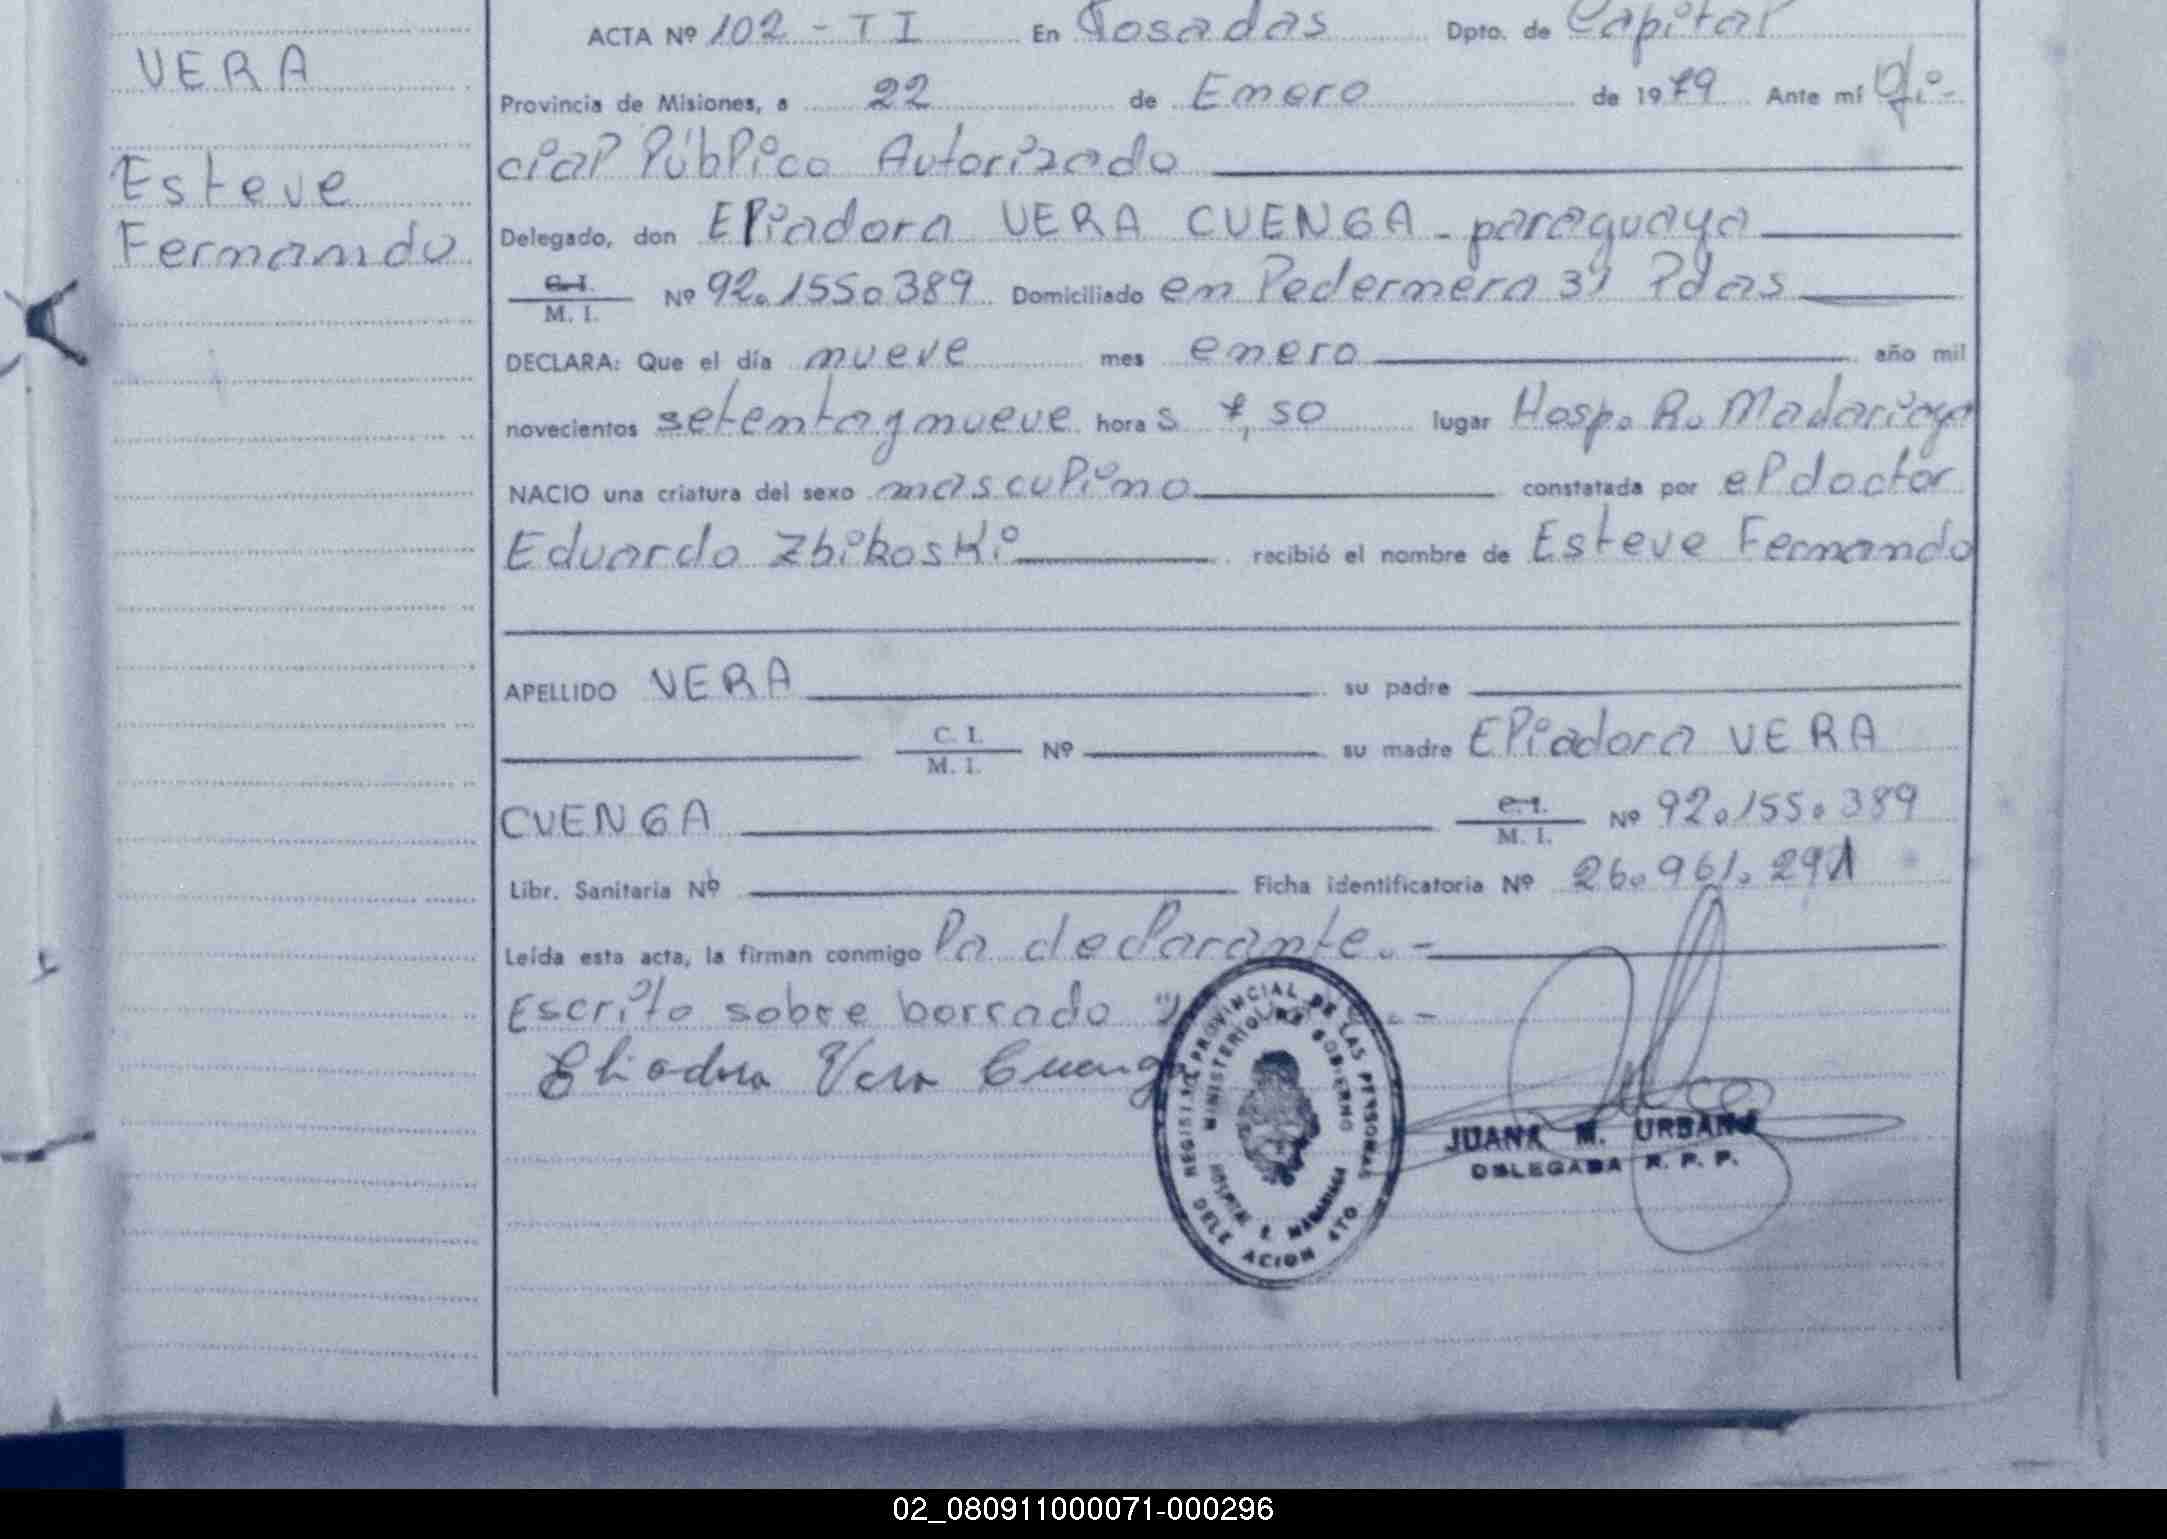 ACTA Nº 102 - TI En Posadas Dpto. de Capital
VERA
Provincia de Misiones, a 22 de Enero de 1979 Ante mí Ofi-
cial Público Autorizado
Esteve
Fernando
Delegado, don Eliadora VERA CUENGA - paraguaya
C. I. / M. I. Nº 92.155.389 Domiciliado en Pedernera 31 Pdas
DECLARA: Que el día nueve mes enero año mil
novecientos setenta y nueve hora s 7,50 lugar Hosp. R. Madariaga
NACIO una criatura del sexo masculino constatada por el doctor
Eduardo Zbikoski recibió el nombre de Esteve Fernando
APELLIDO VERA su padre
C. I. / M. I. Nº su madre Eliadora VERA
CUENGA C. I. / M. I. Nº 92.155.389
Libr. Sanitaria Nº Ficha identificatoria Nº 26.961.291
Leída esta acta, la firman conmigo la declarante.-
Escrito sobre borrado
Eliadora Vera Cueng
REGISTRO PROVINCIAL DE LAS PERSONAS
MINISTERIO DE GOBIERNO
HOSPITAL R. MADARIAGA
DELEGACION 4TO
JUANA M. URBANO
DELEGADA R. P. P.
02_080911000071-000296